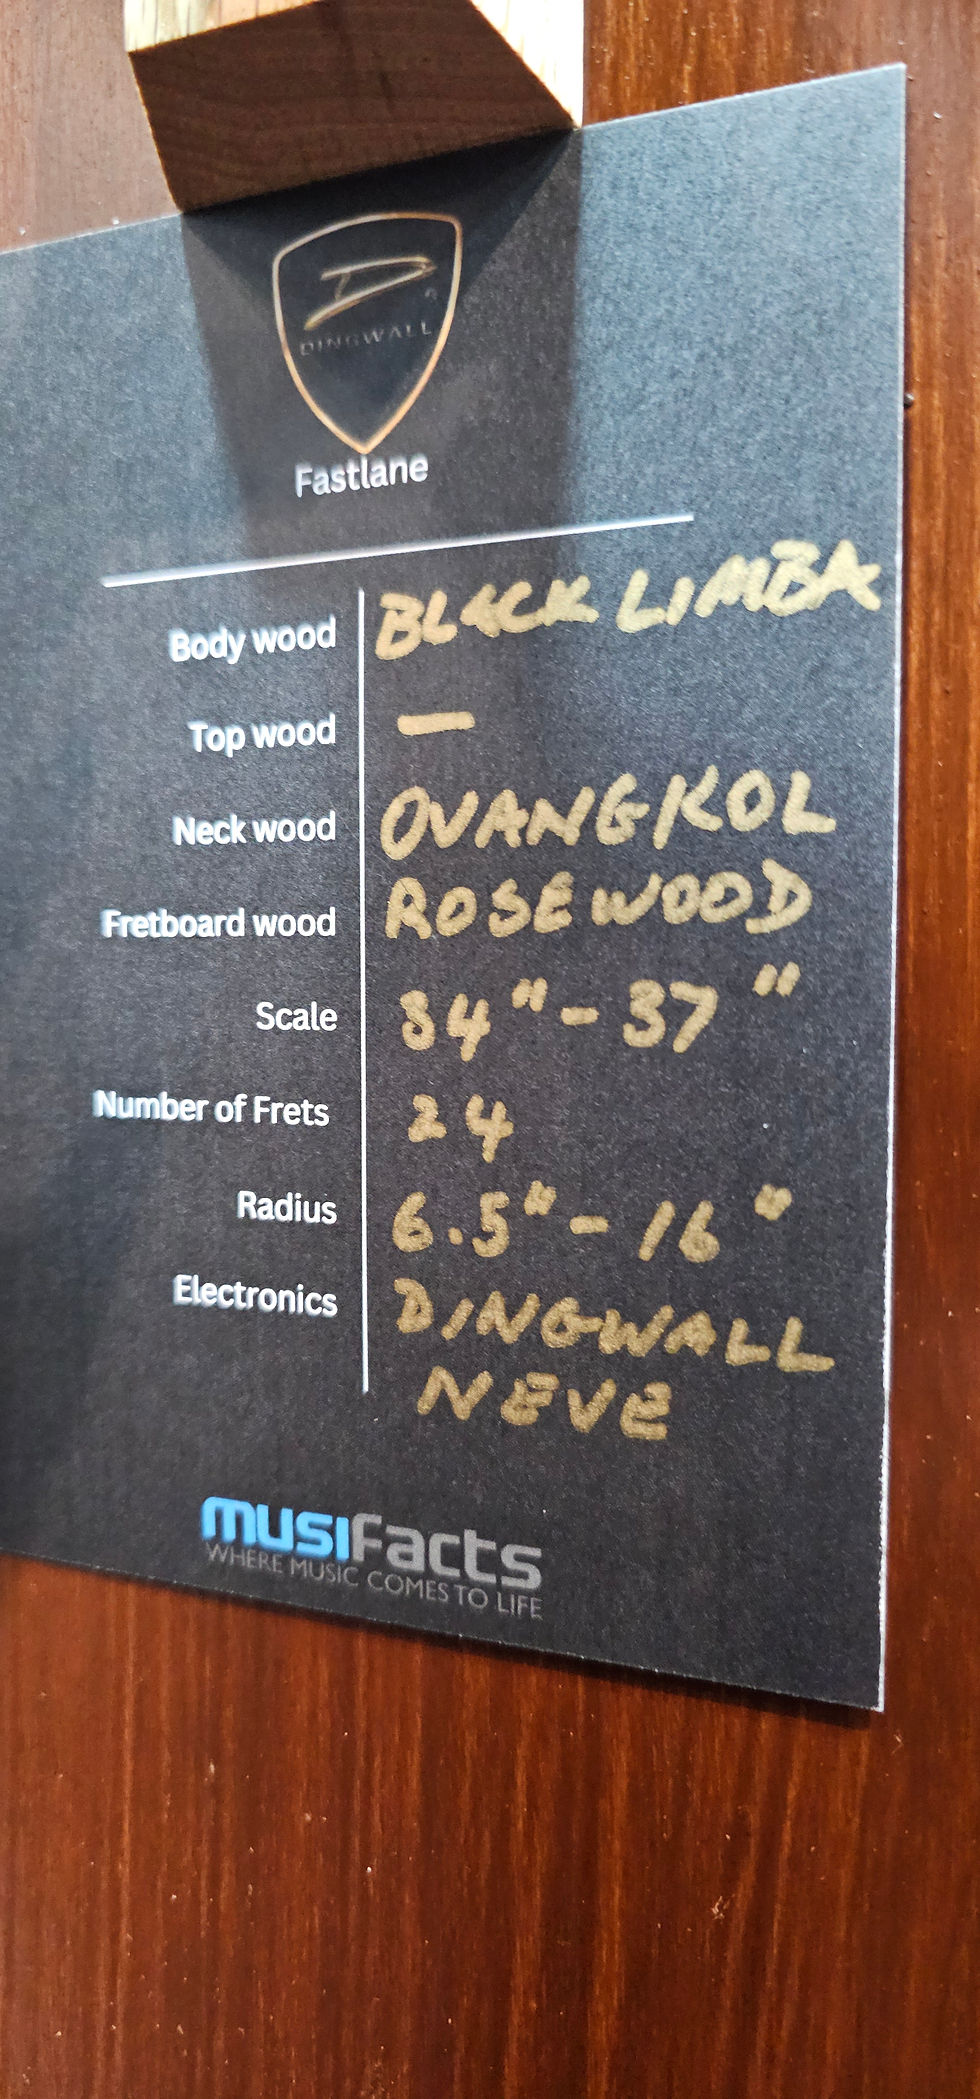 D
DINGWALL
Fastlane
Body wood BLACK LIMBA
Top wood —
Neck wood OVANGKOL
Fretboard wood ROSEWOOD
Scale 34" - 37"
Number of Frets 24
Radius 6.5" - 16"
Electronics DINGWALL
NEVE
musiFacts
WHERE MUSIC COMES TO LIFE